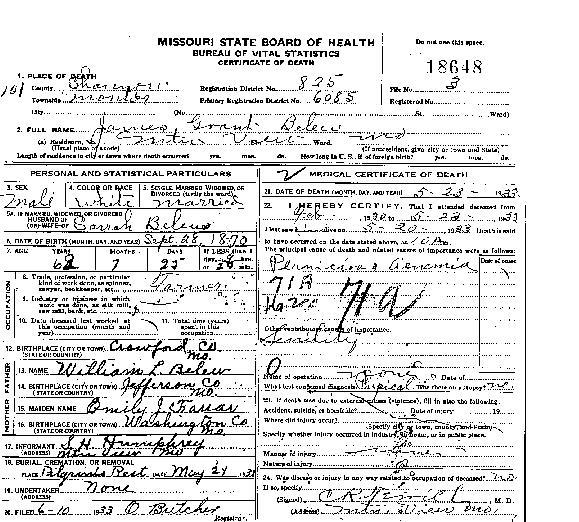 MISSOURI STATE BOARD OF HEALTH
BUREAU OF VITAL STATISTICS
CERTIFICATE OF DEATH
Do not use this space.
18648
1. PLACE OF DEATH
County Shannon Registration District No. 825 File No. 3
Township Primary Registration District No. 6085 Registered No.
City No. St. Ward)
2. FULL NAME James Grant Belew
(a) Residence, No. Mtn View Ward, Mo
(Usual place of abode) (If nonresident, give city or town and State)
Length of residence in city or town where death occurred yrs. mos. ds. How long in U. S. if of foreign birth? yrs. mos. ds.
PERSONAL AND STATISTICAL PARTICULARS
3. SEX Male
4. COLOR OR RACE White
5. SINGLE, MARRIED, WIDOWED, OR DIVORCED (write the word) Married
5A. IF MARRIED, WIDOWED, OR DIVORCED
HUSBAND OF (OR) WIFE OF Sarah Belew
6. DATE OF BIRTH (MONTH, DAY, AND YEAR) Sept. 28 1870
7. AGE YEARS 62 MONTHS 7 DAYS 25 If LESS than 1
OCCUPATION
8. Trade, profession, or particular kind of work done, as spinner, sawyer, bookkeeper, etc. Farmer
9. Industry or business in which work was done, as silk mill, saw mill, bank, etc.
10. Date deceased last worked at this occupation (month and year)
11. Total time (years) spent in this occupation
12. BIRTHPLACE (CITY OR TOWN) Crawford Co
(STATE OR COUNTRY) Mo.
FATHER
13. NAME William L Belew
14. BIRTHPLACE (CITY OR TOWN) Jefferson Co
(STATE OR COUNTRY) Mo.
MOTHER
15. MAIDEN NAME Emily J. Farrar
16. BIRTHPLACE (CITY OR TOWN) Washington Co
(STATE OR COUNTRY) Mo
17. INFORMANT S. H. Humphrey
(ADDRESS) Mtn View Mo
18. BURIAL, CREMATION, OR REMOVAL
PLACE Pilgrims Rest DATE May 24 1933
19. UNDERTAKER None
(ADDRESS)
20. FILED 6-10 1933 O Butcher
Registrar.
MEDICAL CERTIFICATE OF DEATH
21. DATE OF DEATH (MONTH, DAY, AND YEAR) 5-23- 1933
22. I HEREBY CERTIFY, That I attended deceased from
1930 to 5-23- 1933
I last saw alive on 5-20- 1933 Death is said
to have occurred on the date stated above, at
The principal cause of death and related causes of importance were as follows:
Date of onset
Pernicious Anaemia
71B
71a
Other contributory causes of importance:
Senility
Name of operation None Date of
What test confirmed diagnosis? Physical Was there an autopsy? no
23. If death was due to external causes (violence), fill in also the following:
Accident, suicide, or homicide? Date of injury 19
Where did injury occur?
(Specify city or town, county, and State)
Specify whether injury occurred in industry, in home, or in public place.
Manner of injury
Nature of injury
24. Was disease or injury in any way related to occupation of deceased? no
If so, specify
(Signed) M. D.
(Address) Mtn View Mo.